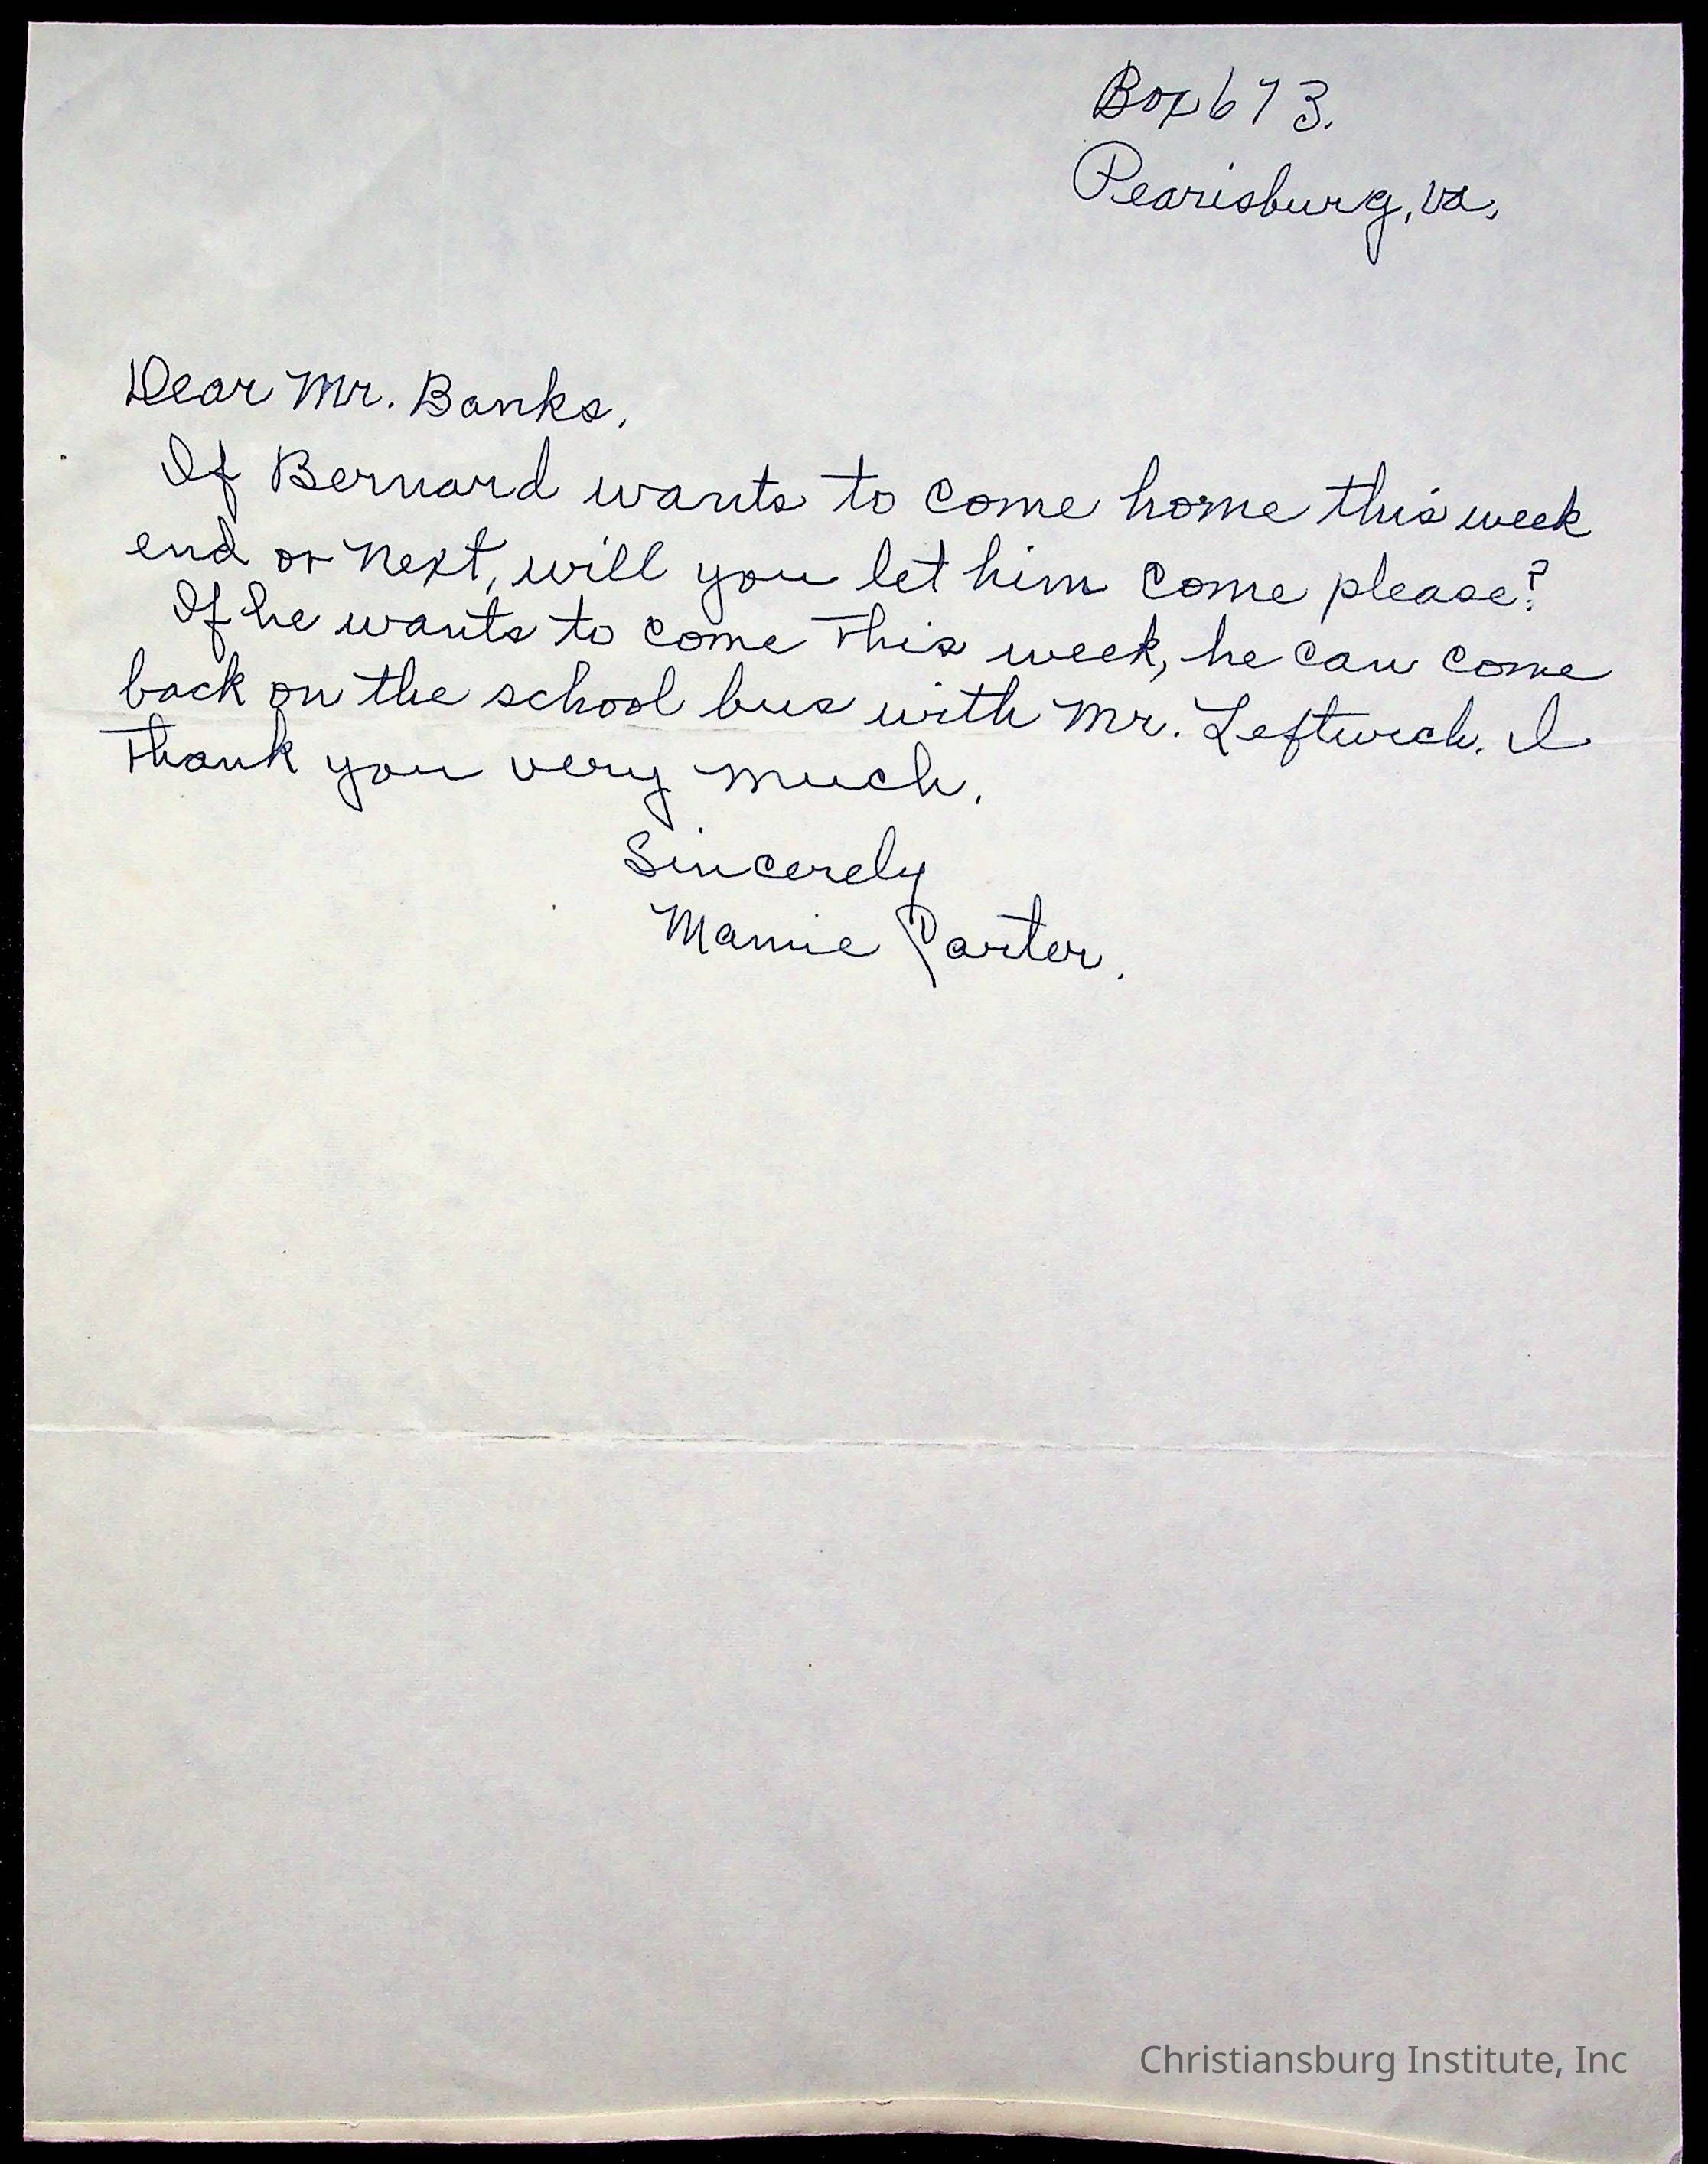 Box 673.
Pearisburg, Va.
Dear Mr. Banks,
If Bernard wants to come home this week
end or next, will you let him come please?
If he wants to come this week, he can come
back on the school bus with Mr. Leftwich. I
thank you very much.
Sincerely
Mamie Carter.
Christiansburg Institute, Inc